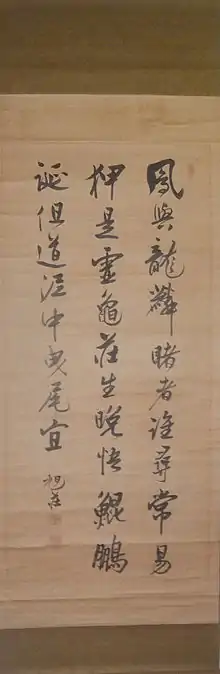 鳳與龍麟睹者誰尋常易
狎是靈龜莊生晩悟鯤鵬
誕但道泥中曳尾宜
旭莊